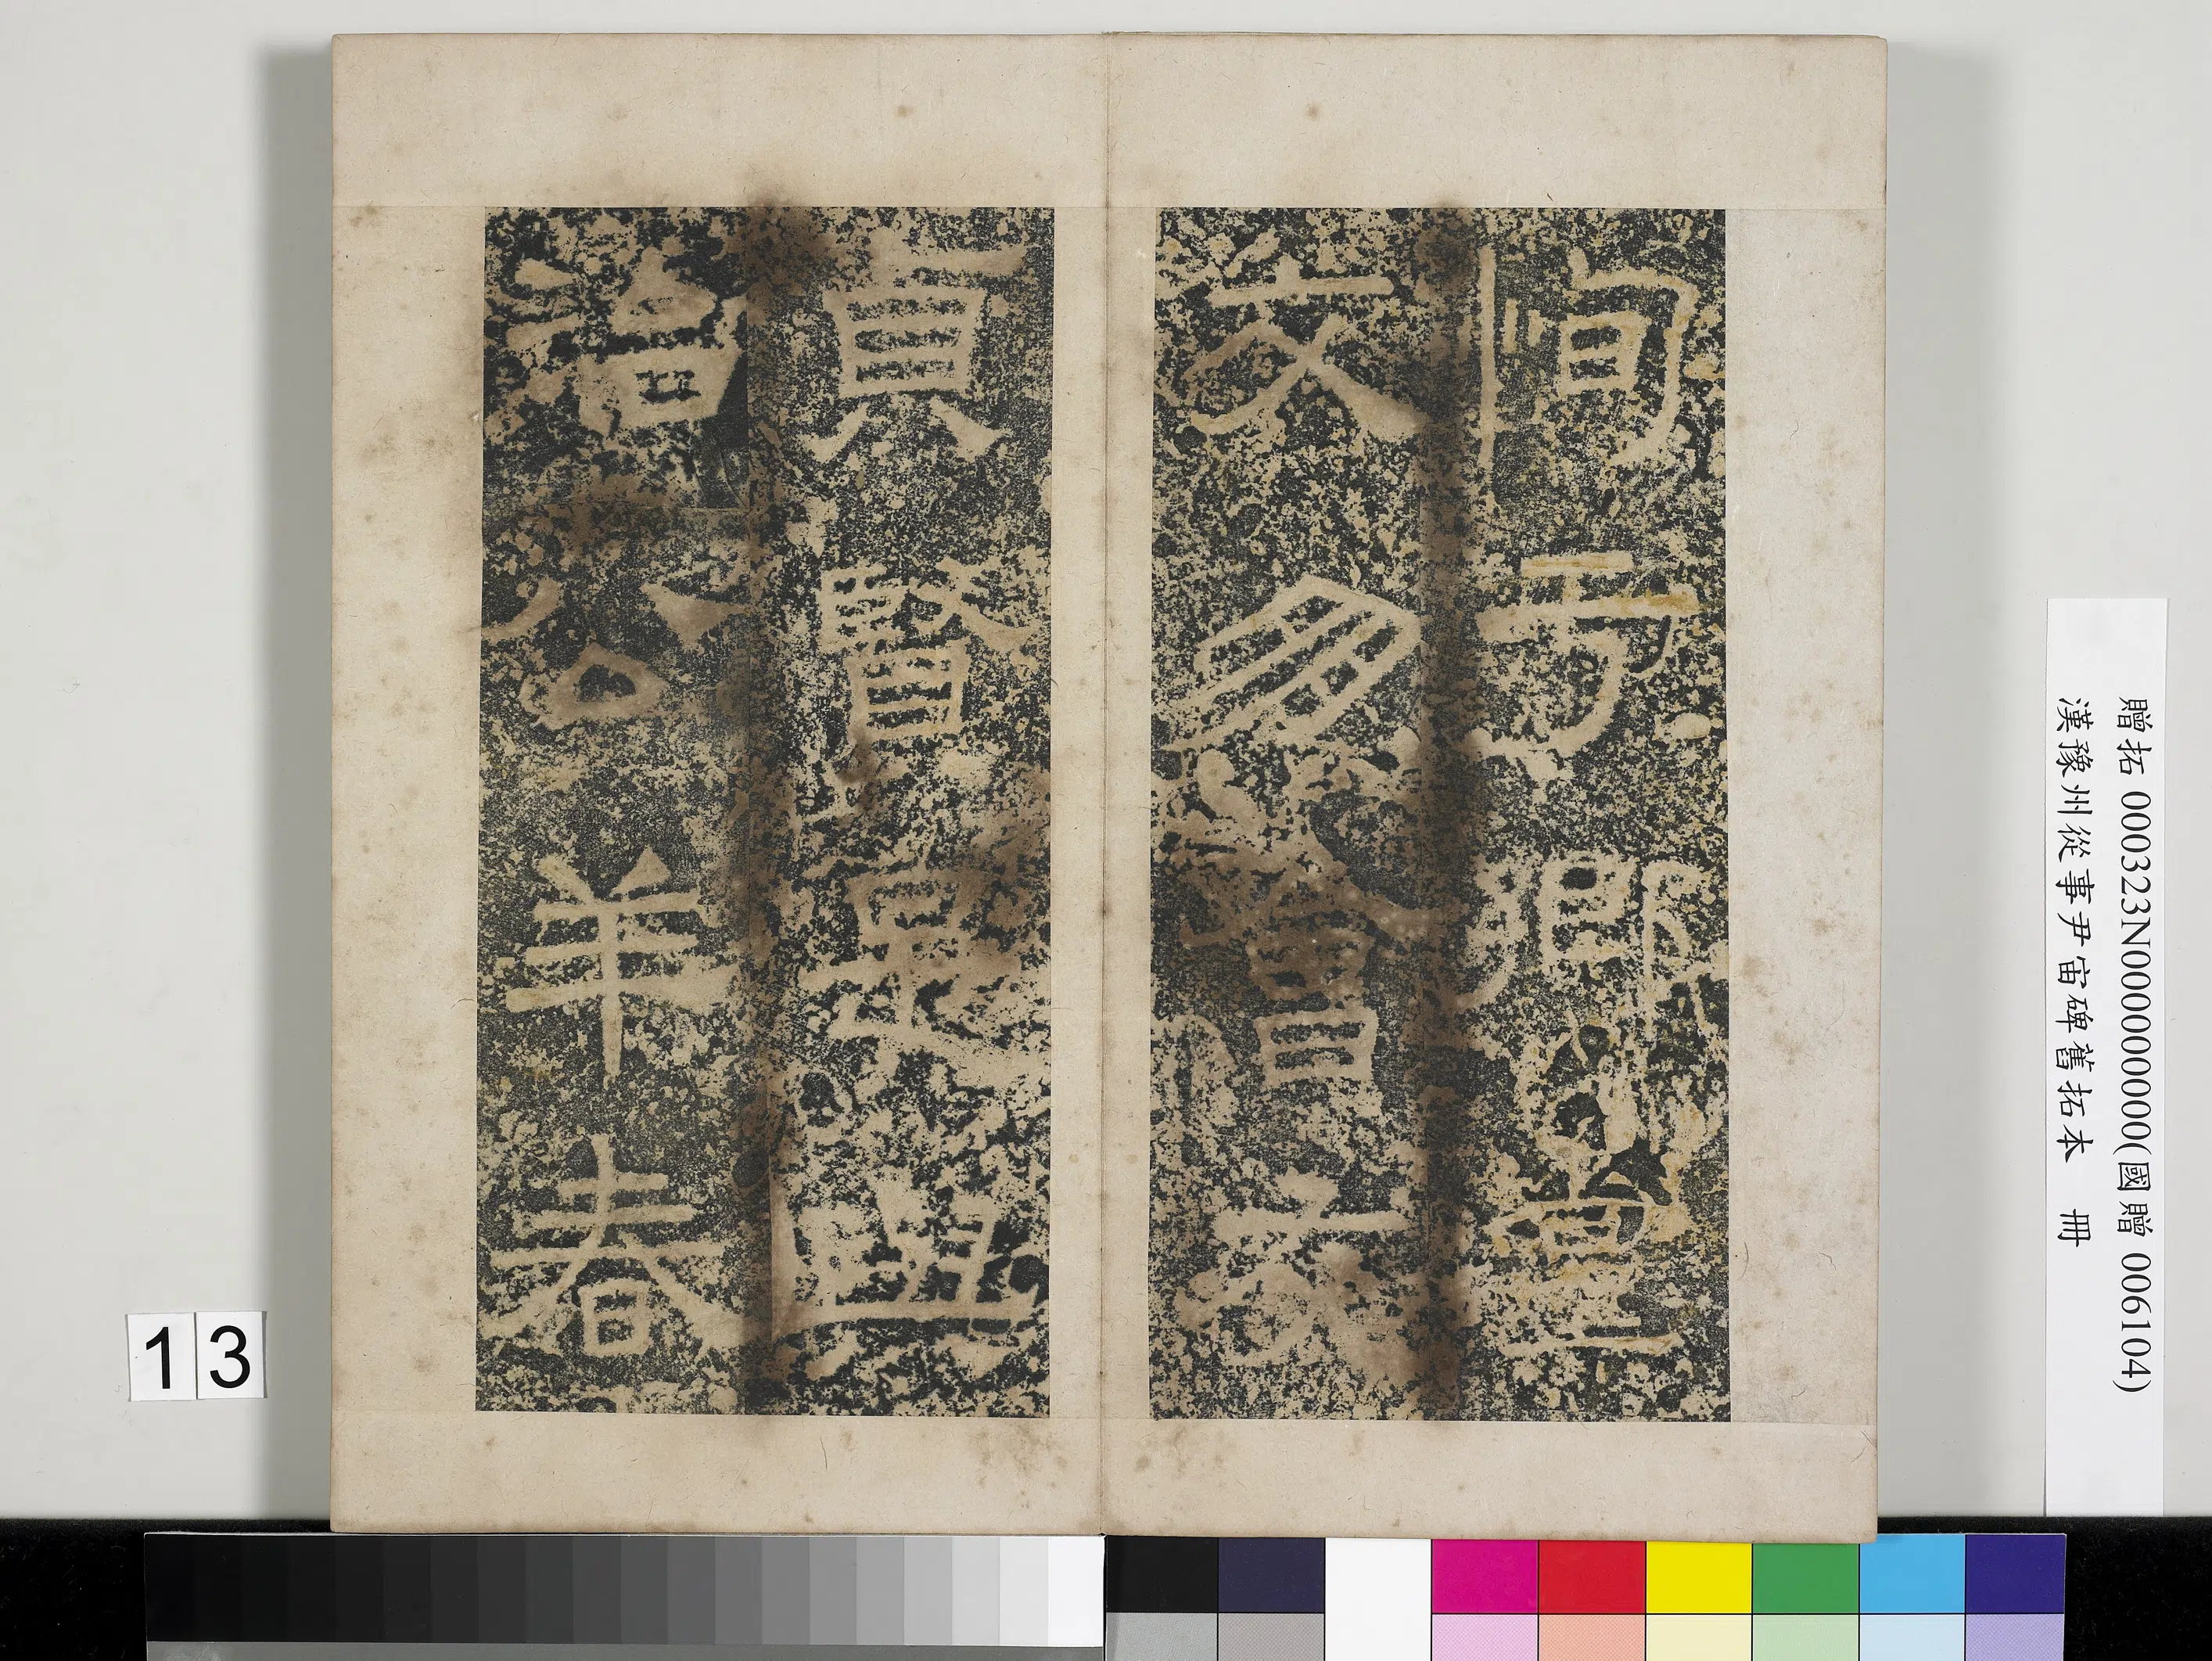 恂于鄉黨
交朋會友
貞賢是與
治公羊春
贈拓 000323N000000000(國贈 006104)
漢豫州從事尹宙碑舊拓本 冊
13